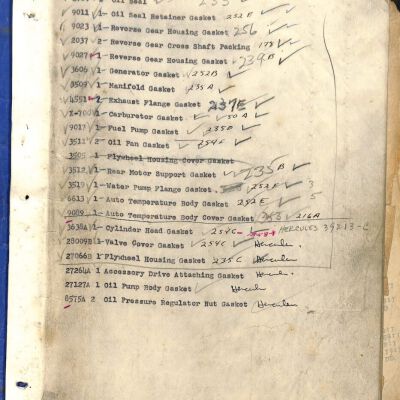 Oil Seal
9011 1-Oil Seal Retainer Gasket 252 E
9023 1-Reverse Gear Housing Gasket 256
2037 2-Reverse Gear Cross Shaft Packing
9027 1-Reverse Gear Housing Gasket 239 B
3606 1-Generator Gasket 252 B
3509 1-Manifold Gasket 235 A
4551 2-Exhaust Flange Gasket 237E
1-Carburetor Gasket 50A
9017 1-Fuel Pump Gasket 235D
3511 2-Oil Pan Gasket 254C
3505 1-Flywheel Housing Cover Gasket
3512 1-Rear Motor Support Gasket 235 B
3519 1-Water Pump Flange Gasket 252 F 3
6613 1-Auto Temperature Body Gasket 252 E 5
9089 1-Auto Temperature Body Cover Gasket 216A
3638A 1-Cylinder Head Gasket 254C HERCULES 39213-C
28009B 1-Valve Cover Gasket 254C Hercules
27066B 1-Flywheel Housing Gasket 235 C Hercules
27264A 1 Accessory Drive Attaching Gasket Hercules
27127A 1 Oil Pump Body Gasket Hercules
8575A 2 Oil Pressure Regulator Nut Gasket Hercules